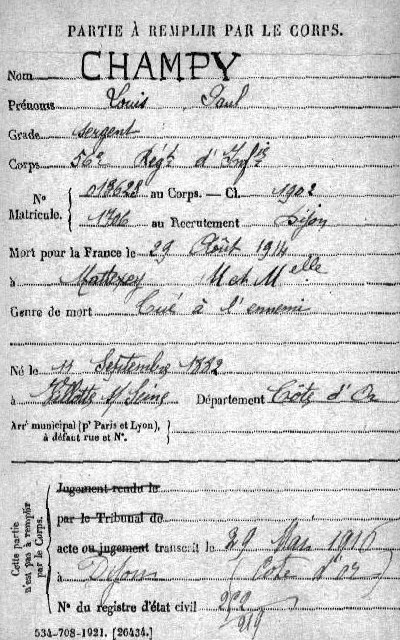 PARTIE À REMPLIR PAR LE CORPS.
Nom CHAMPY
Prénoms Louis Paul
Grade sergent
Corps 56e Régt d'Infie
No Matricule. 013628 au Corps. — Cl. 1902
1706 au Recrutement Dijon
Mort pour la France le 29 Août 1914
à Mattexey M et Melle
Genre de mort Tué à l'ennemi
Né le 11 Septembre 1882
à Villotte s/ Seine Département Côte d'Or
Arrt municipal (pr Paris et Lyon), à défaut rue et No.
Cette partie n'est pas à remplir par le Corps.
Jugement rendu le
par le Tribunal de
acte ou jugement transcrit le 29 Mai 1916
à Dijon (Côte d'or)
No du registre d'état civil 222
219
534-708-1921. [26434.]